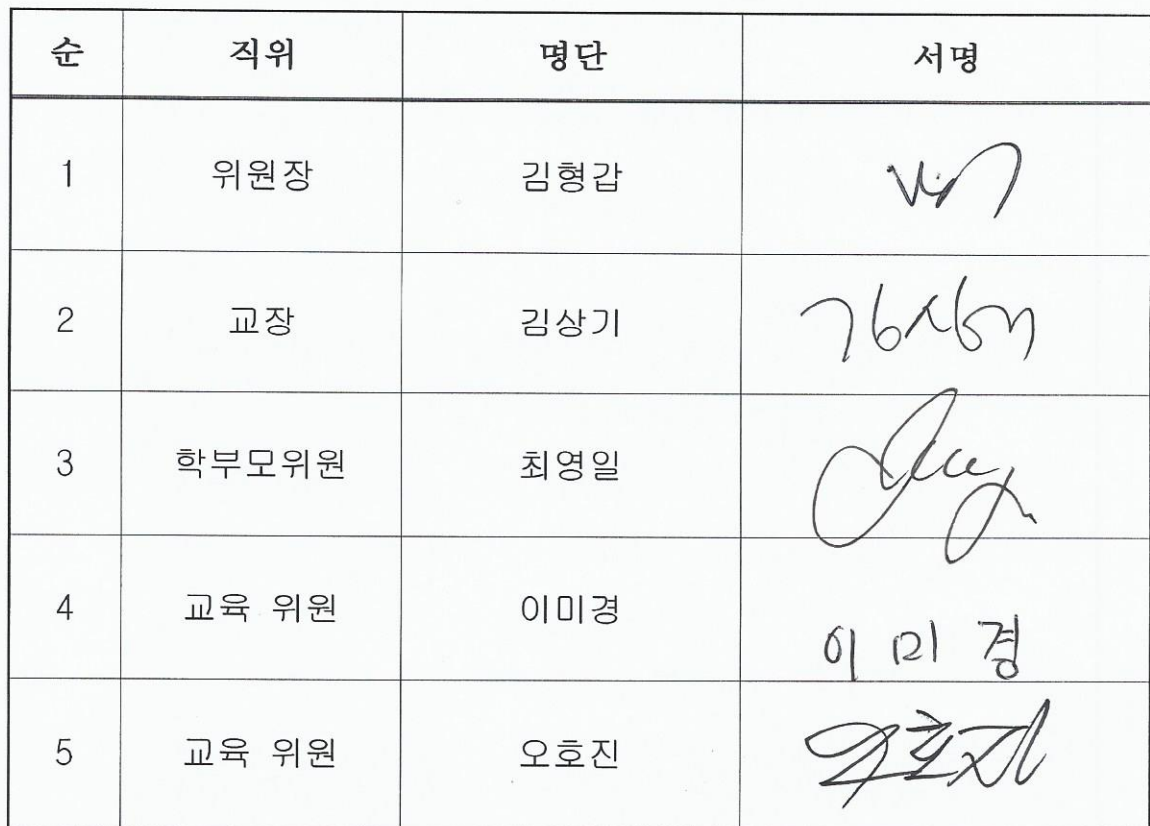 순 직위 명단 서명
1 위원장 김형갑
2 교장 김상기
3 학부모위원 최영일
4 교육 위원 이미경 이미경
5 교육 위원 오호진 오호진